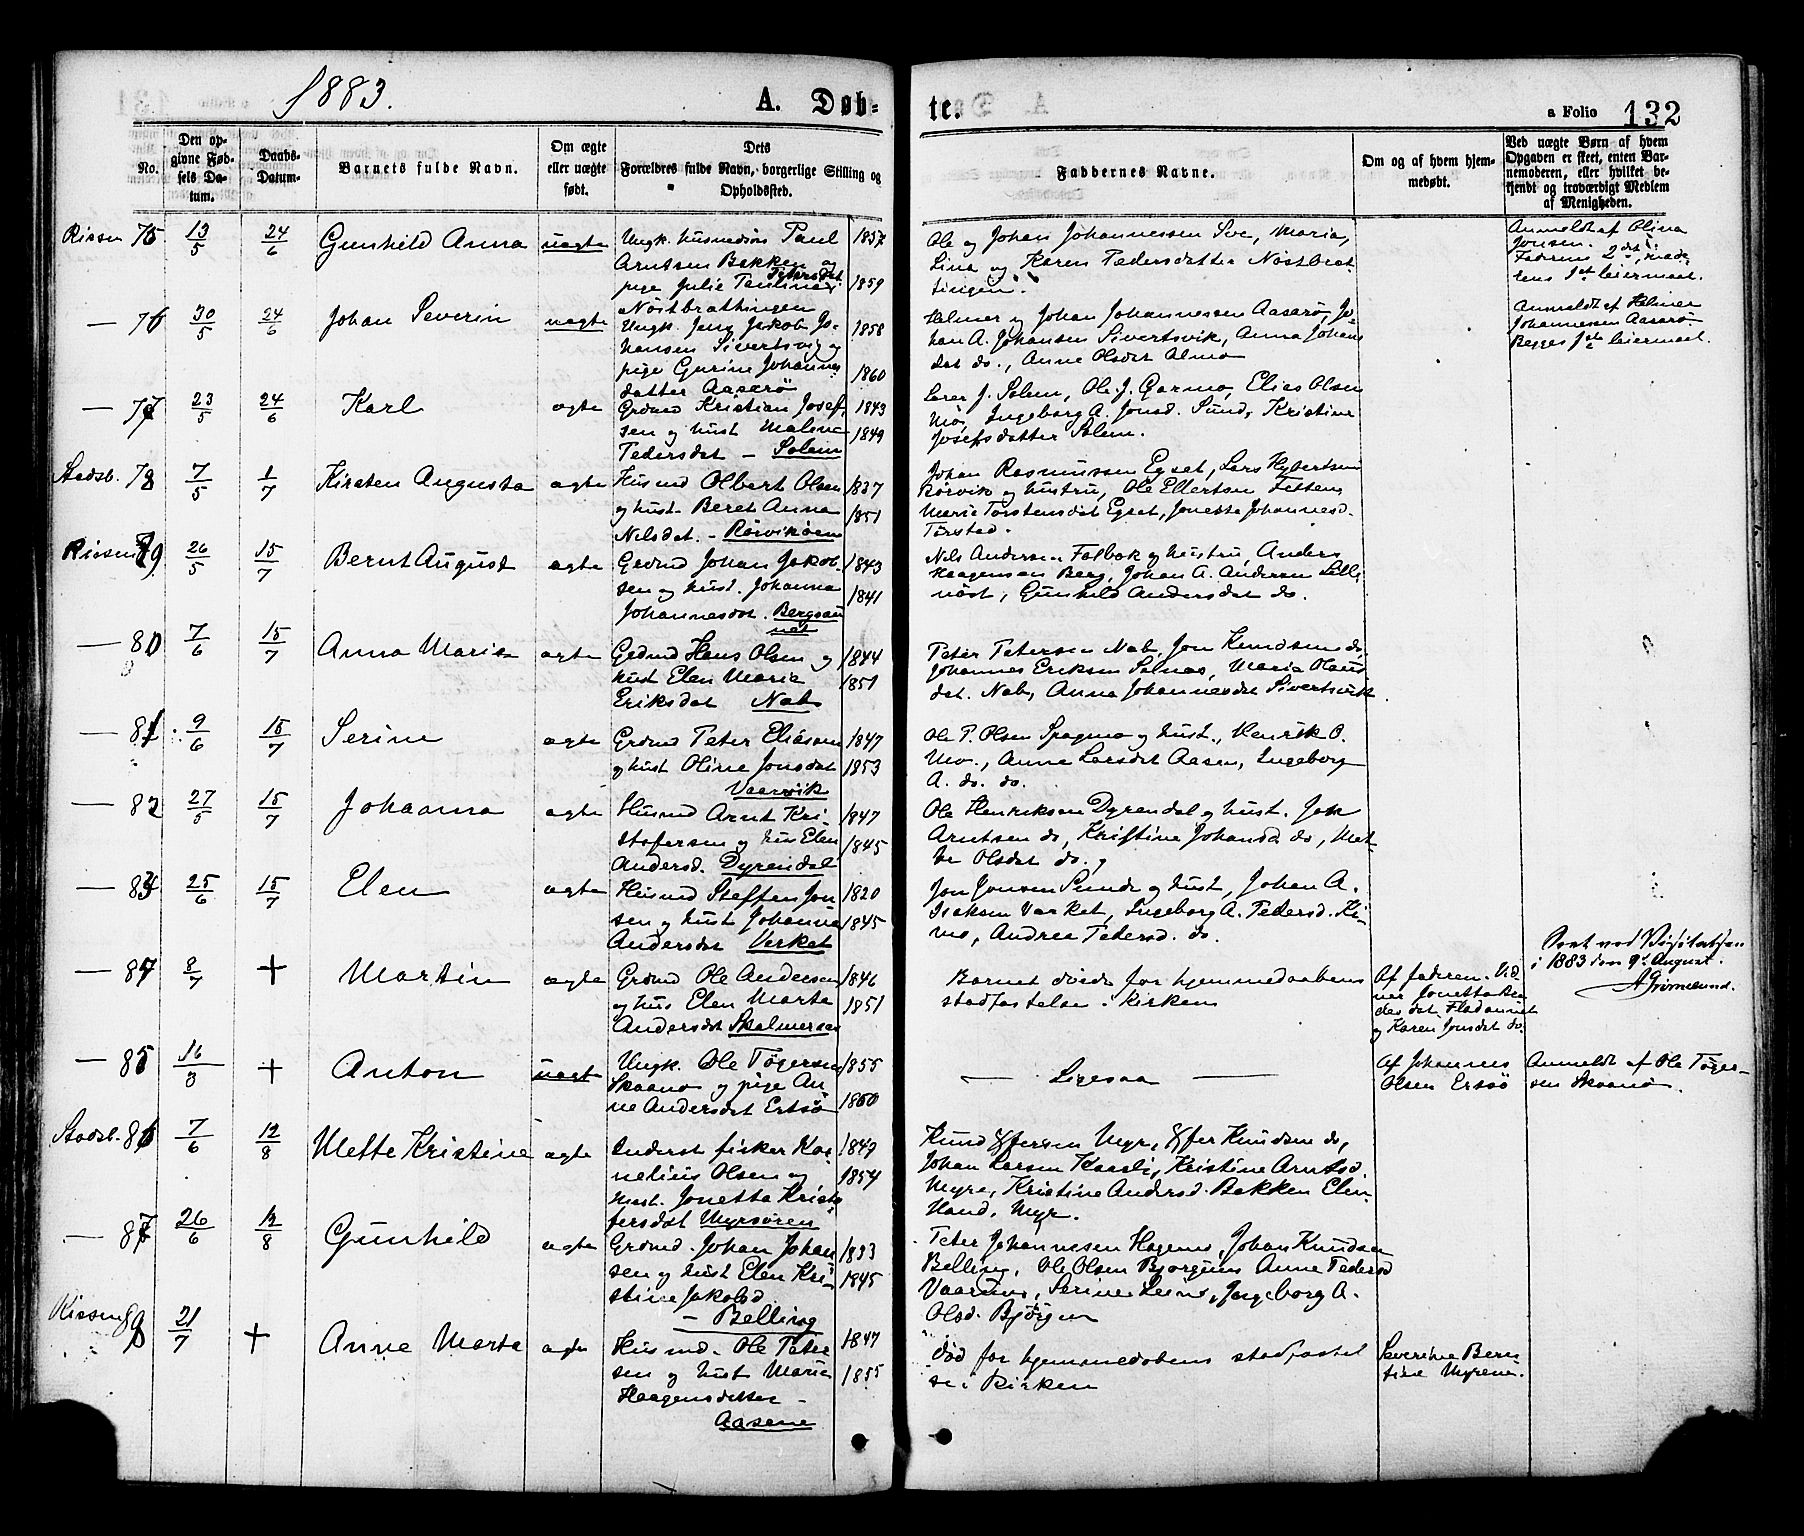 1883.
A. Døb-
te.
a Folio 132
No.
Den op-
givne Fød-
sels Da-
tum.
Daabs-
Datum.
Barnets fulde Navn.
Om ægte
eller uægte
født.
Dets
Forældres fulde Navn, borgerlige Stilling og
Opholdssted.
Faddernes Navne.
Om og af hvem hjem-
medøbt.
Ved uægte Børn af hvem
Opgaven er skeet, enten Bar-
nemoderen, eller hvilket be-
kjendt og troværdigt Medlem
af Menigheden.
Rissen 75 13/5 24/6 Gunhild Anna uægte
Ungk. husmedsøn Paul 1857
Arntsen Bakken og
pige Julie Paulina Petersdat 1859
Nöstbrathingen
Ole og Johan Johannessen Sve, Maria,
Lina og Karen Pedersdatter Nøstbrat-
tingen.
Anmeldt af Olina
Jonsen.
Faderens 2det, mode-
rens 1st leiermaal.
— 76 30/5 24/6 Johan Severin uægte
Ungk. Jens Jakob Jo- 1858
hansen Sivertsvig og
pige Gurine Johannes 1860
datter Aaserö
Helmer og Johan Johannessen Aaserø, Jo-
han A. Johansen Sivertsvik, Anna Johans
det do., Anne Olsdet Almo
Anmeldt af Helmer
Johannessen Aaserø.
Begges 1ste leiermaal.
— 77 23/5 24/6 Karl ægte
Grdmd Kristian Josef- 1843
sen og hust Malena 1849
Pedersdat - Solem
Lorer J. Solem, Ole J. Garmo, Elias Olsen
Mø, Ingeborg A. Jonsd. Sund, Kristine
Josefsdatter Solem.
Stadsb. 78 7/5 1/7 Kirsten Augusta ægte
Husmd Olbert Olsen 1837
og hust. Beret Anna 1851
Nilsdat. - Rørvikøen
Johan Rasmussen Egset, Lars Hybertsen
Rørvik og hustru, Ole Ellertsen Fetten,
Marie Torstensdat Egset, Jonetta Johannesd.
Tørsted.
Rissen 79 26/5 15/7 Bernt August ægte
Grdmd Johan Jakob- 1843
sen og hust. Johanna 1841
Johannesdat. Bergsau
net
Nils Andersen Falbok og hustru, Anders
Haagensen Berg, Johan A. Andersen Lille
nöst, Gunhild Andersdat do.
— 80 7/6 15/7 Anna Marie ægte
Grdmd Hans Olsen og 1844
hust Elen Marie 1851
Eriksdat Nab
Peter Petersen Nab, Jon Knudsen do,
Johannes Eriksen Selnæs, Maria Olaus
dat. Nab, Anna Johannesdat Sivertsvik
— 81 9/6 15/7 Serine ægte
Grdmd Peter Eliasen 1847
og hust Oline Jonsdat 1853
Vaarvik
Ole P. Olsen Spagmo og hust., Henrik O.
Mo., Anne Larsdet Aasen, Ingeborg
A. do. do.
— 82 27/5 15/7 Johanna ægte
Husmd Arnt Kri- 1847
stofersen og hus Elen 1845
Andersd. Dyrendal
Ole Henriksen Dyrendal og hust. Jon
Arntsen do, Kristine Johansd do, Met-
te Olsdat do.
— 83 25/6 15/7 Elen ægte
Husmd Steffen Jon 1820
sen og hust Johanna 1845
Andersdat Verket
Jon Jonsen Sund og hust, Johan A.
Isaksen Varket, Ingeborg A. Pedersd. Ki-
mo, Andrea Petersd. do.
— 84 8/7 + Martin ægte
Grdmd Ole Andersen 1846
og hus Elen Marta 1851
Andersdat Skalmersen
Barnet døde for hjemmedaabens
stadfæstelse i Kirken
Af faderen. Vid
ner Jonetta
det Fladaunet
og Karen Jonsdet do.
Seet ved Visitatsen
i 1883 den 9de August.
A Grimelund.
— 85 16/3 + Anton uægte
Ungk. Ole Tøgersen 1855
Skaanø og pige An-
ne Andersdat Ertsö 1860
— Ligesaa —
Af Johannes
Olsen Ertsö
Anmeldt af Ole Töger-
sen Skaanø.
Stadsb. 86 7/6 12/8 Mette Kristine ægte
Inderst fisker Kor- 1847
nelius Olsen og 1854
hust. Jonetta Kristo
fersdat Myrsören
Knud Effersen Myr, Effer Knudsen do,
Johan Larsen Karsli, Kristine Arntsd.
Myr, Kristine Andersd. Bakken Elen
Hand, Myr.
— 87 26/6 12/8 Gunhild ægte
Grdmd. Johan Johan 1833
sen og hust Elen Kri- 1845
stine Jakobsd
- Belling
Peter Johannesen Hagemo, Johan Knudsen
Belling, Ole Olsen Bjørgum Anne Pedersd
Vaaren, Serine Lein, Ingeborg A.
Olsd. Bjørgen
Rissen 88 21/7 + Anne Marta ægte
Husmd. Ole Peter 1847
sen og hust Marie 1855
Haagensdatter -
Aasene
Död for hjemmedøbens stadfæstel
se i Kirken
Severine Bern
tine Myrene.